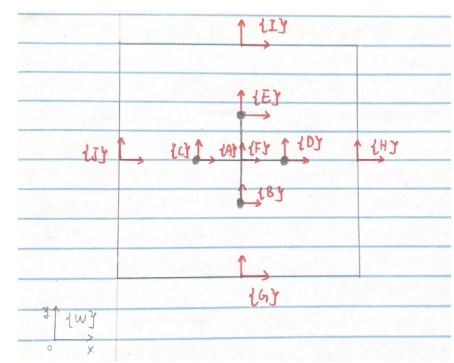 {I}
{E}
{J} {C} {A} {F} {D} {H}
{B}
{G}
y {W}
0 x